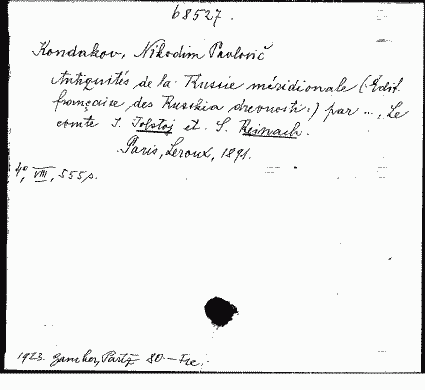 68527.
Kondakov, Nikodim Pavlovič
Antiquités de la Russie méridionale (Edit.
française des Russkia drevnosti.) par ..., Le
comte I. Tolstoj et S. Reinach.
Paris, Leroux, 1891.
4o, VIII, 555 p.
1923. Gamber, Paris 80.- Frc.